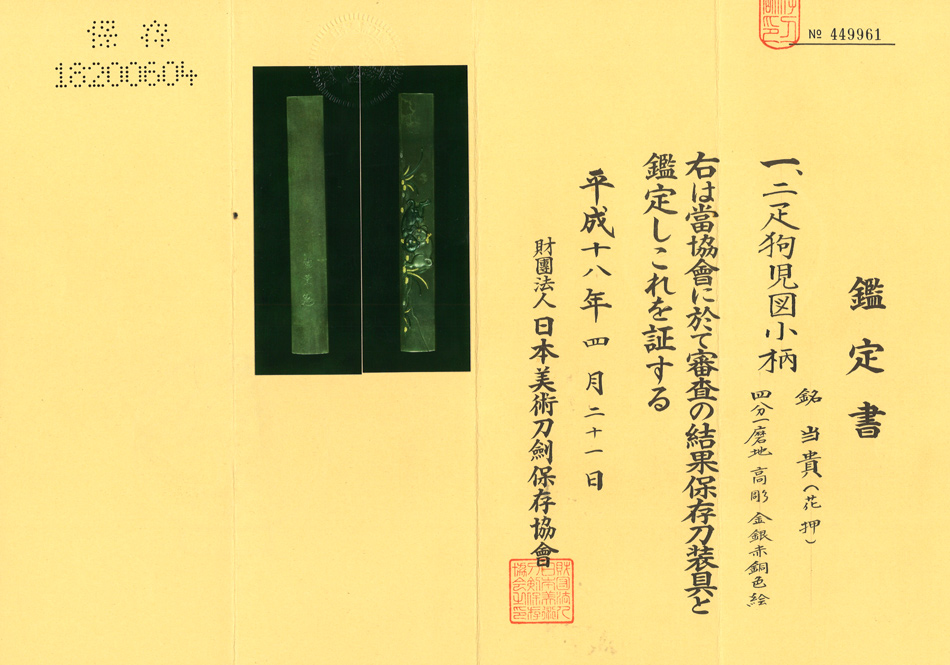 鑑定書
一、二疋狗児図小柄
銘 当貴(花押)
四分一磨地 高彫 金銀赤銅色絵
右は當協會に於て審査の結果保存刀装具と
鑑定しこれを証する
平成十八年四月二十一日
財團法人 日本美術刀劍保存協會
№ 449961
保存
18200604